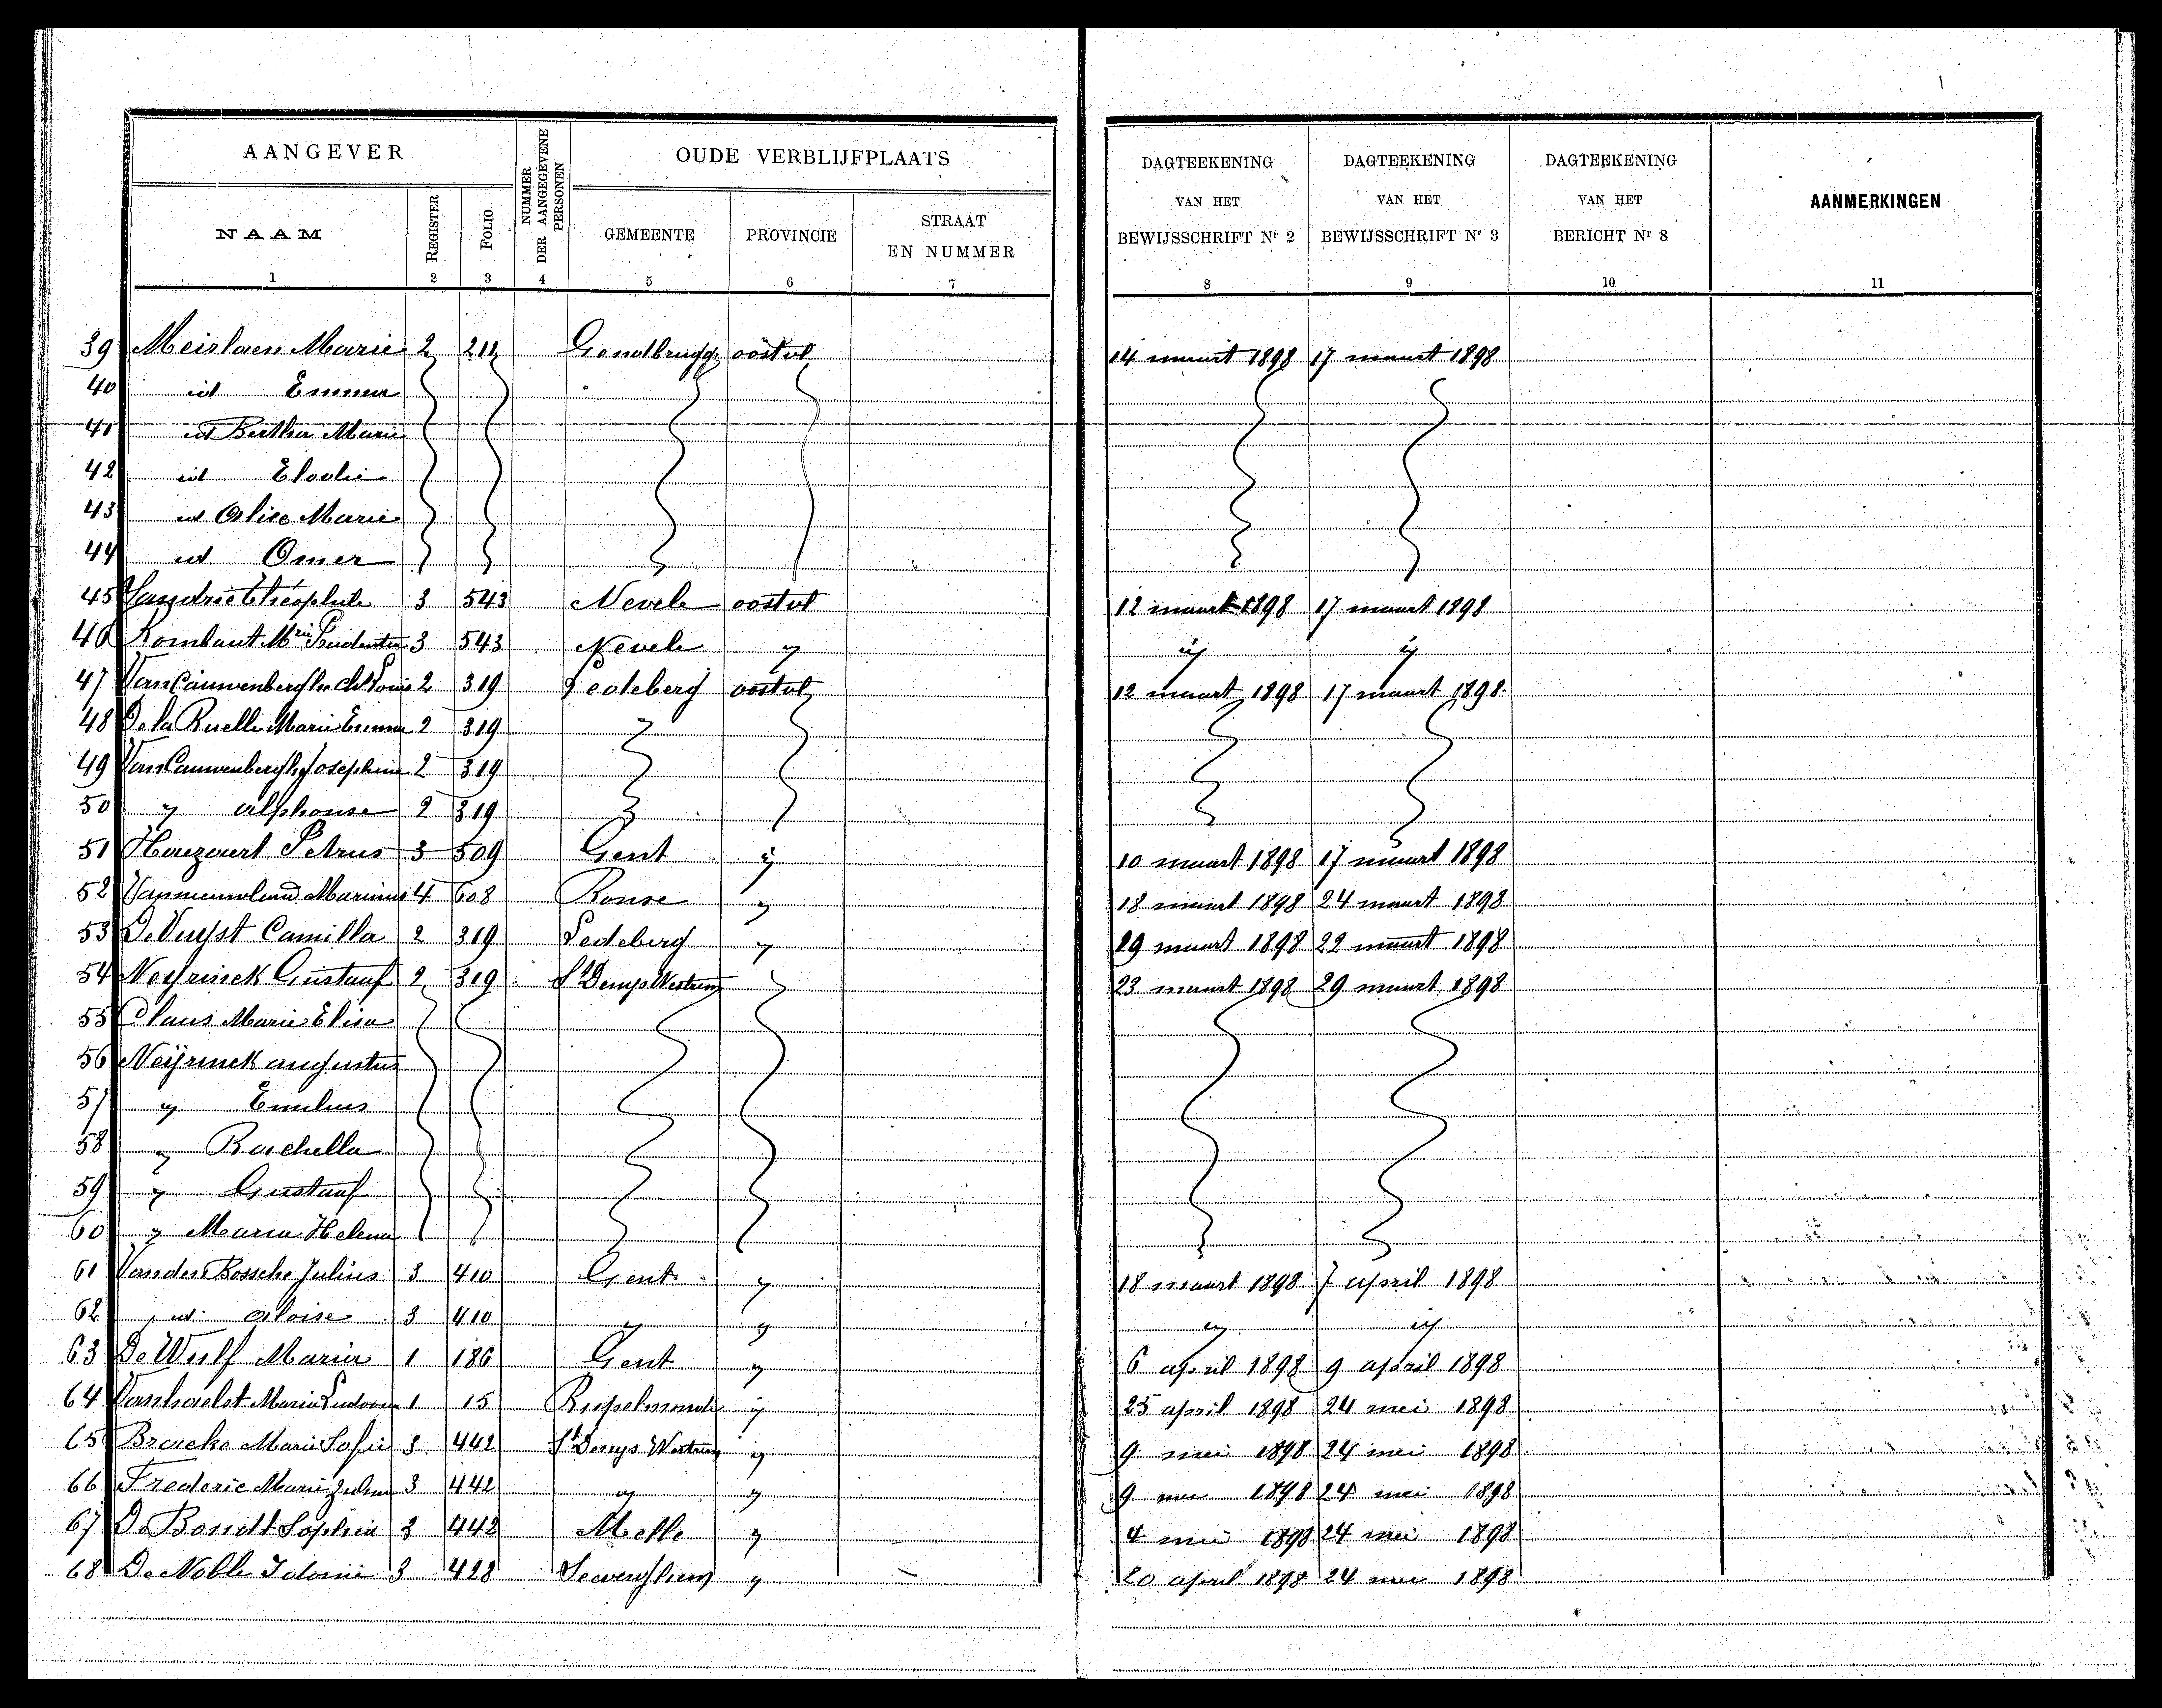 AANGEVER
NUMMER DER AANGEGEVENE PERSONEN
OUDE VERBLIJFPLAATS
DAGTEEKENING VAN HET BEWIJSSCHRIFT Nr 2
DAGTEEKENING VAN HET BEWIJSSCHRIFT Nr 3
DAGTEEKENING VAN HET BERICHT Nr 8
AANMERKINGEN
NAAM REGISTER FOLIO GEMEENTE PROVINCIE STRAAT EN NUMMER
1 2 3 4 5 6 7 8 9 10 11
39 Meirlaen Marie 2 212 Gendbrugge oostvl 14 maart 1898 17 maart 1898
40 id Emma
41 id Bertha Marie
42 id Elodie
43 id Alice Marie
44 id Omer
45 Theophile 3 543 Nevele oostvl 12 maart 1898 17 maart 1898
46 Rombaut Mie Prudentia 3 543 Nevele " " "
47 Van Cauwenberghe Ch Louis 2 319 Ledeberg oostvl 12 maart 1898 17 maart 1898
48 De la Ruelle Marie Emma 2 319
49 Van Cauwenberghe Josephine 2 319
50 " alphonse 2 319
51 Petrus 3 509 Gent " 10 maart 1898 17 maart 1898
52 4 608 Ronse " 18 maart 1898 24 maart 1898
53 De Vuyst Camilla 2 319 Ledeberg " 29 maart 1898 22 maart 1898
54 Neyrinck Gustaaf 2 319 St Denys Westrem 23 maart 1898 29 maart 1898
55 Claus Marie Elisa
56 Neÿrinck augustus
57 " Emilius
58 " Rachella
59 " Gustaaf
60 " Maria Helena
61 Vanden Bossche Julius 3 410 Gent " 18 maart 1898 7 april 1898
62 id Aloise 3 410 " " " "
63 De Wulf Maria 1 186 Gent " 6 april 1898 9 april 1898
64 Vanhaelst Maria 1 15 Rupelmonde " 25 april 1898 24 mei 1898
65 Bracke Marie Sofie 3 442 St Denys Westrem " 9 mei 1898 24 mei 1898
66 Frederic Marie 3 442 " " 9 mei 1898 24 mei 1898
67 De Bondt Sophia 3 442 Melle " 4 mei 1898 24 mei 1898
68 De Noble Idonie 3 428 " 20 april 1898 24 mei 1898